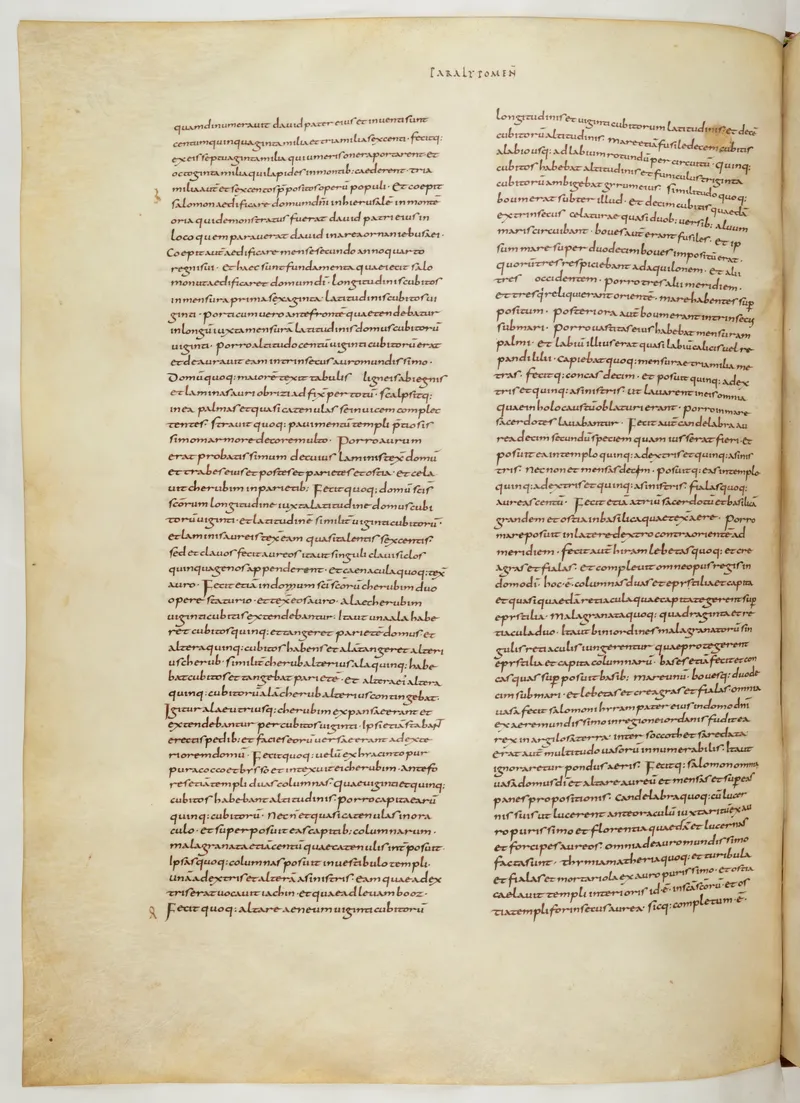 PARALYPOMEN̄
quamdinumerauit dauid pater eius et inuenti sunt
centum quinquaginta milia et tria milia sexcenti · fecitq;
ex eis septuaginta milia qui umeris onera portarent · et
octoginta milia qui lapides in montib; caederent · tria
milia aut̄ et sexcentos p̄positos operū populi · Et coepit
salomon aedificare domum dn̄i in hierusalē in monte
oria qui demonstratus fuerat dauid patri eius in
loco quem parauerat dauid in area ornan iebusaei ·
Coepit aut̄ aedificare mense secundo anno quarto
regni sui · Et haec sunt fundamenta quae iecit salo
mon ut aedificaret domum dī · longitudinis cubitos
in mensura prima sexaginta · latitudinis cubitos ui
ginti · porticum uero ante frontē quae tendebatur
in longū iuxta mensurā latitudinis domus cubitorū
uiginti · porro altitudo centū uiginti cubitorū erat
et deaurauit eam intrinsecus auro mundissimo ·
Domū quoq; maiorē texit tabulis ligneis abiegnis
et laminas auri obrizi adfixit per totū · scalpsitq;
in ea palmas et quasi catenulas se inuicem complec
tentes · strauit quoq; pauimentū templi p̄tiosis
simo marmore decore multo · Porro aurum
erat probatissimum de cuius laminis texit domū
et trabes eius et postes et parietes et ostia · et cela
uit cherubim in parietib; Fecit quoq; domū sc̄i
sc̄orum longitudinē iuxta latitudinē domus cubi
torū uiginti · et latitudinē similit̄ uiginti cubitorū ·
et laminis aureis texit eam quasi talentis sexcentis ·
sed et clauos fecit aureos ita ut singuli claui siclos
quinquagenos appenderent · et caenacula quoq; texit
auro · Fecit etiā in domum sc̄i sc̄orū cherubim duo
opere statuario · et texit eos auro · Alae cherubim
uiginti cubitis extendebantur · Ita ut una ala habe
ret cubitos quinq; et tangeret parietē domus et
altera quinq; cubitos habens et alā tangeret alteri
us cherub · similit̄ cherub alterius ala quinq; habe
bat cubitos et tangebat parietē · et ala ei altera
quinq; cubitorū alā cherub alterius contingebat ·
Igitur alae utriusq; cherubim expansae erant et
extendebantur per cubitos uiginti · Ipsi etiā stabaNT
erectis pedib; et facies eorū uersae erant ad exte
riorem domū · Fecit quoq; uelū ex hyacinto pur
pura cocco et bysso et intexuit ei cherubim · Ante fo
res etiā templi duas columnas · quae uiginti et quinq;
cubitos habebant altitudinis · porro capita earū
quinq; cubitorū · Nec n̄ et quasi catenulas in ora
culo · et superposuit eas capitib; columnarum ·
malagranata etiā centū quae catenulis interposuit ·
Ipsas quoq; columnas posuit in uestibulo templi ·
unā a dextris et alterā a sinistris · eam quae a dex
tris erat uocauit iachin · et quae ad leuam booz ·
Fecit quoq; altare aeneum uiginti cubitorū
longitudinis et uiginti cubitorum latitudinis et decē
cubitorū altitudinis · mare etiā fusile decem cubitis
a labio usq; ad labium rotundū per circuitū · quinq;
cubitos habebat altitudinis et funiculus triginta
cubitorū ambigebat gyrum eius · similitudo quoq;
boum erat subter illud · et decem cubitis quaedā
extrinsecus celaturae quasi duob; uersib; aluum
maris circuibant · boues aut̄ erant fusiles · et ip
sum mare super duodecim boues impositū erat ·
quorū tres respiciebant ad aquilonem · et alii
tres occidentem · porro tres alii meridiem ·
et tres q̇ reliqui erant orientē · mare habentes sup̄
positum · posteriora aut̄ boum erant intrinsecus
sub mari · porro uastitas eius habebat mensuram
palmi · et labiū illius erat quasi labiū calicis uel re
pandi lilii · capiebat quoq; mensurae tria milia me
tras · fecit q; concas decim · et posuit quinq; a dex
tris et quinq; a sinistris · ut lauarent in eis omnia
quae in holocaustū oblaturi erant · porro in mare
sacerdotes lauabantur · Fecit aut̄ candelabra au
rea decim secundū speciem quam iusserat fieri · et
posuit ea in templo quinq; a dextris et quinq; a sinis
tris · nec non et mensas decem · posuitq; eas in templo
quinq; a dextris et quinq; a sinistris · fialas quoq;
aureas centū · Fecit etiā atriū sacerdotū et basilicā
grandem et ostia in basilica quae texit aere · Porro
mare posuit in latere dextro contra orientē ad
meridiem · fecit aut̄ hiram lebetas quoq; et cre
agras et fialas · et compleuit omne opus regis in
domo dī · hoc ē · columnas duas et epistilia et capita
et quasi quaedā retiacula quae capita tegerent sup̄
epistilia · Malagranata quoq; quadraginta et re
tiacula duo · Ita ut bini ordines malagranatorū sin
gulis retiaculis iungerentur quae protegerent
epistilia et capita columnarū · bases etiā fecit et con
cas quas sup̄posuit basib; mare unū · boues q; duode
cim sub mari · et lebetas et creagras et fialas · omnia
uasa fecit salomoni hyram pater eius in domo dn̄i
ex aere mundissimo in regione iordanis fudit ea
rex in argilosa terra · inter soccoth et saredata ·
erat aut̄ multitudo uasorū innumerabilis · Ita ut
ignoraretur pondus aeris · Fecit q; salomon omnia
uasa domus dī et altare aureū et mensas et super eas
panes propositionis · candelabra quoq; cū lucer
nis suis ut lucerent ante oraculū iuxta ritū ex au
ro purissimo et florentia quaedā et lucernas
et forcipes aureos · omnia de auro mundissimo
facta sunt · thymiamatheria quoq; et turibula
et fialas et mortariola ex auro purissimo · et ostia
caelauit templi interioris · id · ē · in sc̄a sc̄orū · et os
tia templi forinsecus aurea · sicq; completum · ē ·